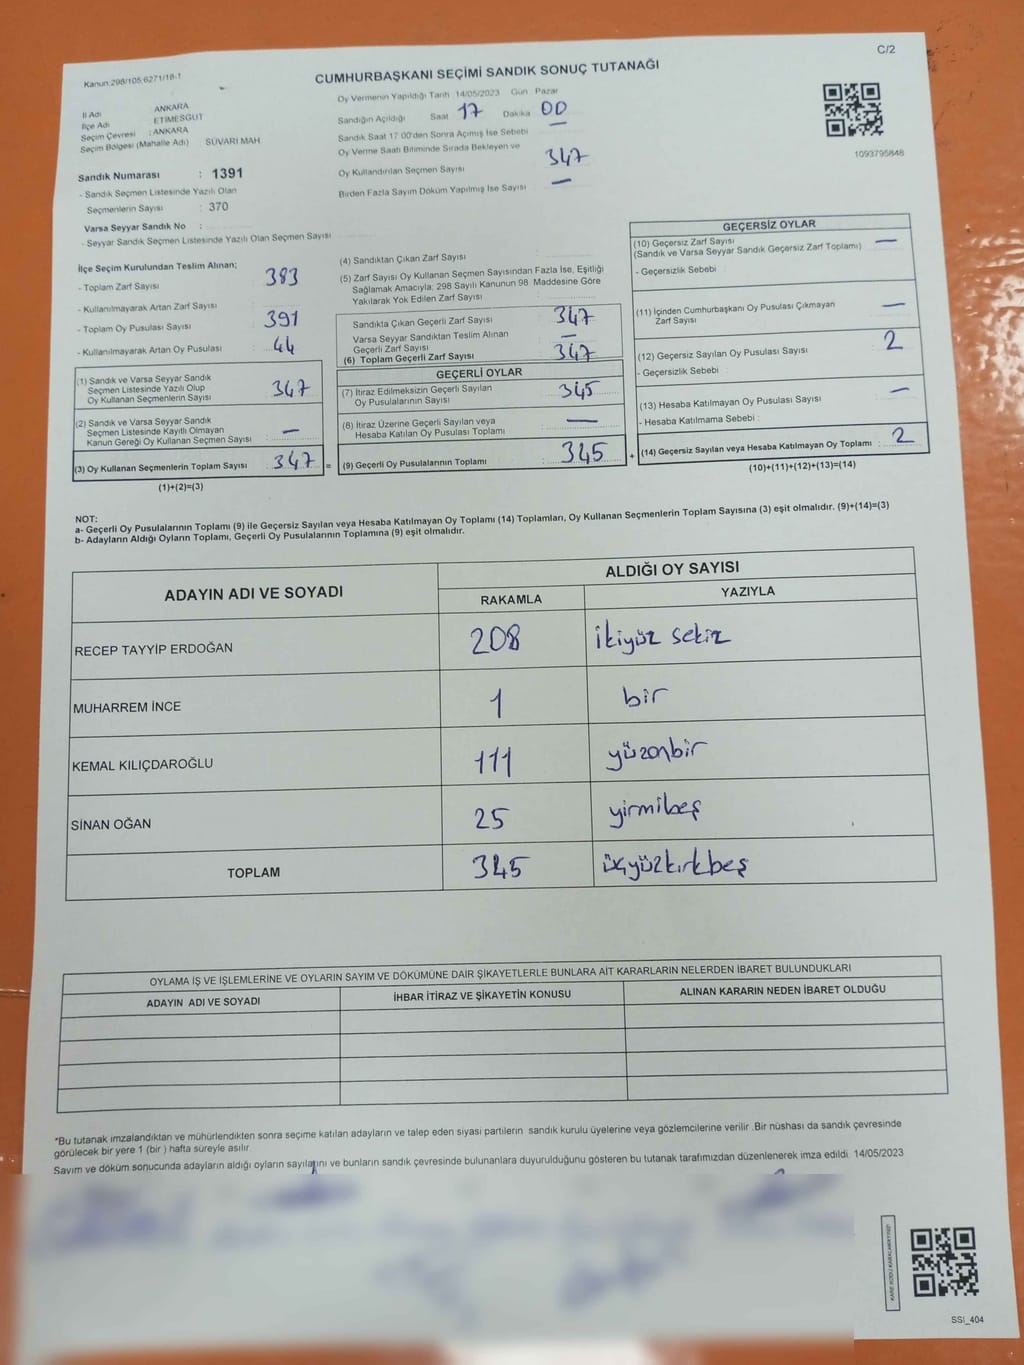 C/2
Kanun:298/105;6271/18-1
CUMHURBAŞKANI SEÇİMİ SANDIK SONUÇ TUTANAĞI
İl Adı : ANKARA
İlçe Adı : ETİMESGUT
Seçim Çevresi : ANKARA
Seçim Bölgesi (Mahalle Adı) SÜVARİ MAH
Sandık Numarası : 1391
- Sandık Seçmen Listesinde Yazılı Olan
Seçmenlerin Sayısı : 370
Varsa Seyyar Sandık No :
- Seyyar Sandık Seçmen Listesinde Yazılı Olan Seçmen Sayısı
Oy Vermenin Yapıldığı Tarih 14/05/2023 Gün : Pazar
Sandığın Açıldığı Saat 17 Dakika 00
Sandık Saat 17:00'den Sonra Açmış İse Sebebi —
Oy Verme Saati Bitiminde Sırada Bekleyen ve
Oy Kullandırılan Seçmen Sayısı 347
Birden Fazla Sayım Döküm Yapılmış İse Sayısı —
1093795848
İlçe Seçim Kurulundan Teslim Alınan;
- Toplam Zarf Sayısı : 383
- Kullanılmayarak Artan Zarf Sayısı :
- Toplam Oy Pusulası Sayısı : 391
- Kullanılmayarak Artan Oy Pusulası : 44
(1) Sandık ve Varsa Seyyar Sandık
Seçmen Listesinde Yazılı Olup
Oy Kullanan Seçmenlerin Sayısı : 347
(2) Sandık ve Varsa Seyyar Sandık
Seçmen Listesinde Kayıtlı Olmayan
Kanun Gereği Oy Kullanan Seçmen Sayısı : —
(3) Oy Kullanan Seçmenlerin Toplam Sayısı : 347 =
(1)+(2)=(3)
(4) Sandıktan Çıkan Zarf Sayısı :
(5) Zarf Sayısı Oy Kullanan Seçmen Sayısından Fazla İse, Eşitliği
Sağlamak Amacıyla; 298 Sayılı Kanunun 98 Maddesine Göre
Yakılarak Yok Edilen Zarf Sayısı :
Sandıkta Çıkan Geçerli Zarf Sayısı : 347
Varsa Seyyar Sandıktan Teslim Alınan
Geçerli Zarf Sayısı : —
(6) Toplam Geçerli Zarf Sayısı : 347
GEÇERLİ OYLAR
(7) İtiraz Edilmeksizin Geçerli Sayılan
Oy Pusulalarının Sayısı : 345
(8) İtiraz Üzerine Geçerli Sayılan veya
Hesaba Katılan Oy Pusulası Toplamı : —
(9) Geçerli Oy Pusulalarının Toplamı : 345 +
GEÇERSİZ OYLAR
(10) Geçersiz Zarf Sayısı
(Sandık ve Varsa Seyyar Sandık Geçersiz Zarf Toplamı) : —
- Geçersizlik Sebebi :
(11) İçinden Cumhurbaşkanı Oy Pusulası Çıkmayan
Zarf Sayısı : —
(12) Geçersiz Sayılan Oy Pusulası Sayısı : 2
- Geçersizlik Sebebi
(13) Hesaba Katılmayan Oy Pusulası Sayısı : —
- Hesaba Katılmama Sebebi :
(14) Geçersiz Sayılan veya Hesaba Katılmayan Oy Toplamı : 2
(10)+(11)+(12)+(13)=(14)
NOT:
a- Geçerli Oy Pusulalarının Toplamı (9) ile Geçersiz Sayılan veya Hesaba Katılmayan Oy Toplamı (14) Toplamları, Oy Kullanan Seçmenlerin Toplam Sayısına (3) eşit olmalıdır. (9)+(14)=(3)
b- Adayların Aldığı Oyların Toplamı, Geçerli Oy Pusulalarının Toplamına (9) eşit olmalıdır.
ADAYIN ADI VE SOYADI
ALDIĞI OY SAYISI
RAKAMLA YAZIYLA
RECEP TAYYİP ERDOĞAN 208 ikiyüz sekiz
MUHARREM İNCE 1 bir
KEMAL KILIÇDAROĞLU 111 yüzonbir
SİNAN OĞAN 25 yirmibeş
TOPLAM 345 üçyüzkırkbeş
OYLAMA İŞ VE İŞLEMLERİNE VE OYLARIN SAYIM VE DÖKÜMÜNE DAİR ŞİKAYETLERLE BUNLARA AİT KARARLARIN NELERDEN İBARET BULUNDUKLARI
ADAYIN ADI VE SOYADI İHBAR İTİRAZ VE ŞİKAYETİN KONUSU ALINAN KARARIN NEDEN İBARET OLDUĞU
*Bu tutanak imzalandıktan ve mühürlendikten sonra seçime katılan adayların ve talep eden siyasi partilerin sandık kurulu üyelerine veya gözlemcilerine verilir .Bir nüshası da sandık çevresinde
görülecek bir yere 1 (bir ) hafta süreyle asılır.
Sayım ve döküm sonucunda adayların aldığı oyların sayılarını ve bunların sandık çevresinde bulunanlara duyurulduğunu gösteren bu tutanak tarafımızdan düzenlenerek imza edildi. 14/05/2023
SSI_404